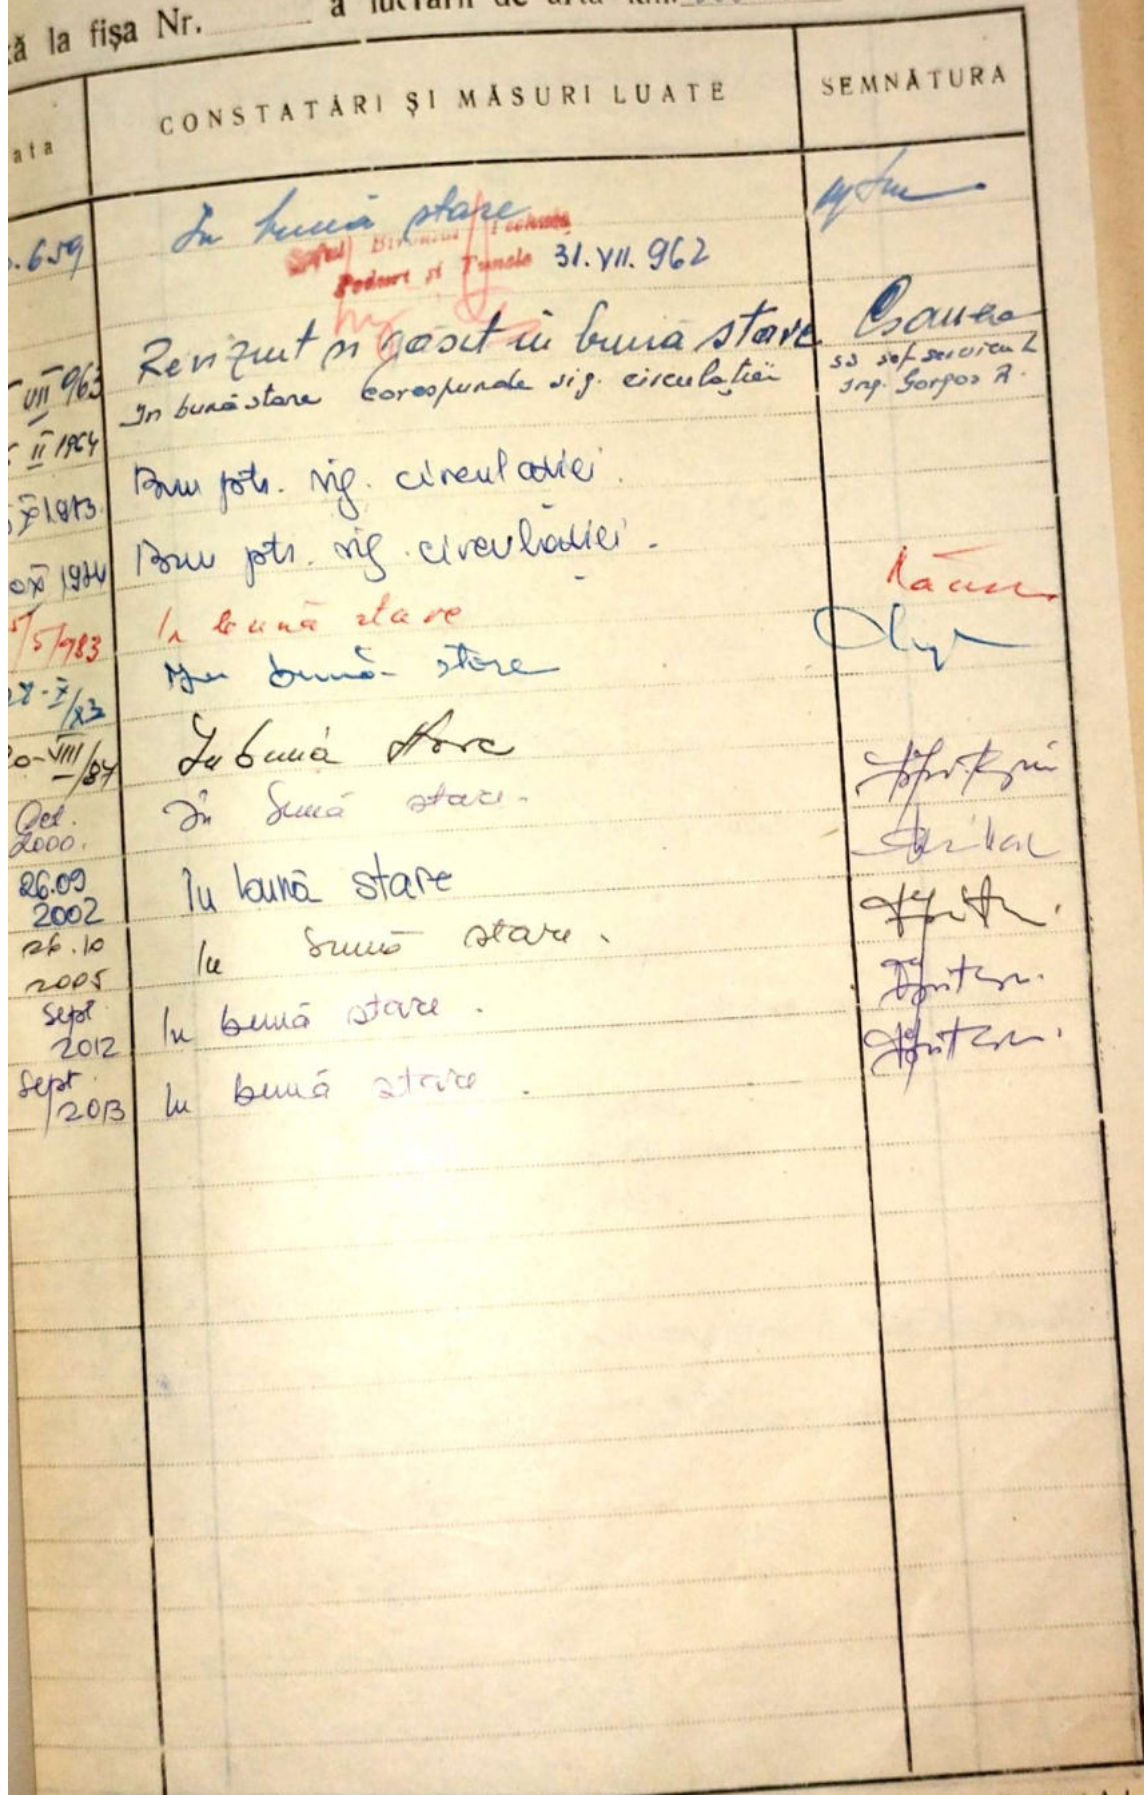 ă la fișa Nr. a lucrării de artă km.
ata CONSTATĂRI ȘI MĂSURI LUATE SEMNĂTURA
.659 In bună stare
Șeful Biroului Tehnic
Poduri și Tunele 31.VII.962
VII 963 Revizuit și găsit în bună stare
In bună stare corespunde sig. circulației șef serviciu L
ing. Gorgos A.
II 1964
X 1973 Bun ptr. sig. circulației.
XI 1974 Bun ptr. sig. circulației.
/5/983 In bună stare
X/83 In bună stare
VIII/87 In bună stare
Oct. 2000. În bună stare.
26.09 2002 În bună stare
26.10 2005 In bună stare.
Sept 2012 In bună stare.
Sept 2013 In bună stare.